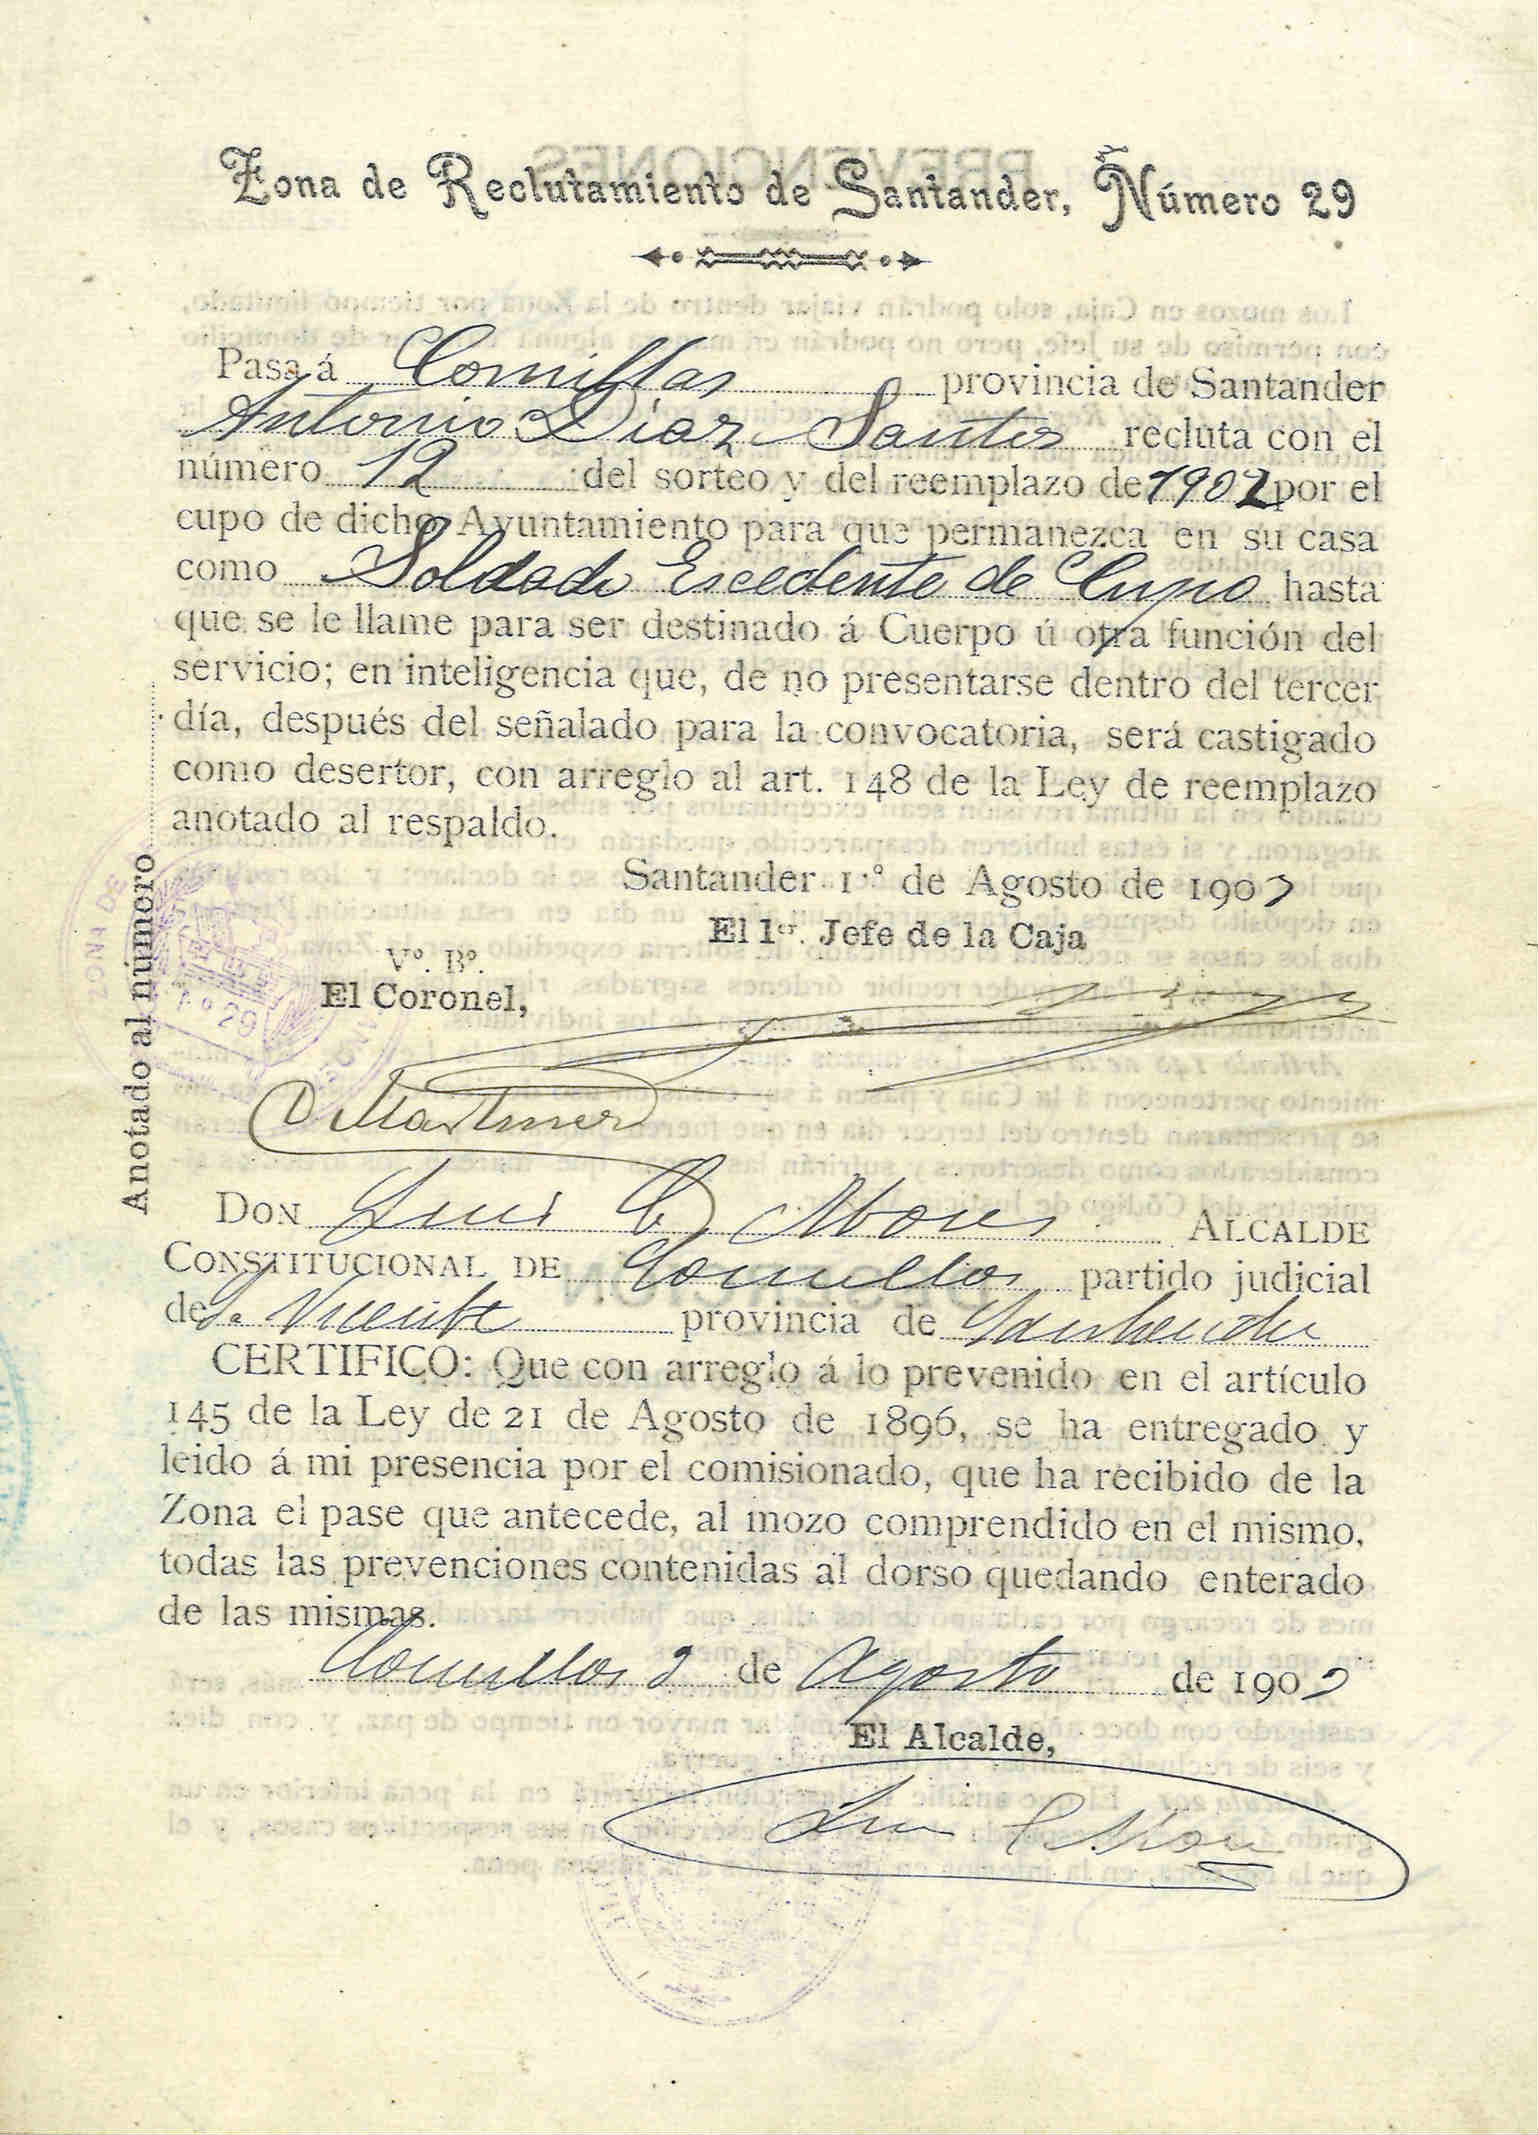 Zona de Reclutamiento de Santander, Número 29
Pasa á Comillas provincia de Santander
Antonio Diaz Santos recluta con el
número 12 del sorteo y del reemplazo de 1902 por el
cupo de dicho Ayuntamiento para que permanezca en su casa
como Soldado Escedente de Cupo hasta
que se le llame para ser destinado á Cuerpo ú otra función del
servicio; en inteligencia que, de no presentarse dentro del tercer
día, después del señalado para la convocatoria, será castigado
como desertor, con arreglo al art. 148 de la Ley de reemplazo
anotado al respaldo.
Santander 1.º de Agosto de 1902
El 1er. Jefe de la Caja
Vº. Bº.
El Coronel,
D Martinez
Anotado al número
ZONA DE
Nº 29
DON Luis C ALCALDE
CONSTITUCIONAL DE Comillas partido judicial
de S. Vicente provincia de Santander
CERTIFICO: Que con arreglo á lo prevenido en el artículo
145 de la Ley de 21 de Agosto de 1896, se ha entregado y
leido á mi presencia por el comisionado, que ha recibido de la
Zona el pase que antecede, al mozo comprendido en el mismo,
todas las prevenciones contenidas al dorso quedando enterado
de las mismas.
Comillas 2 de Agosto de 1902
El Alcalde,
Luis C